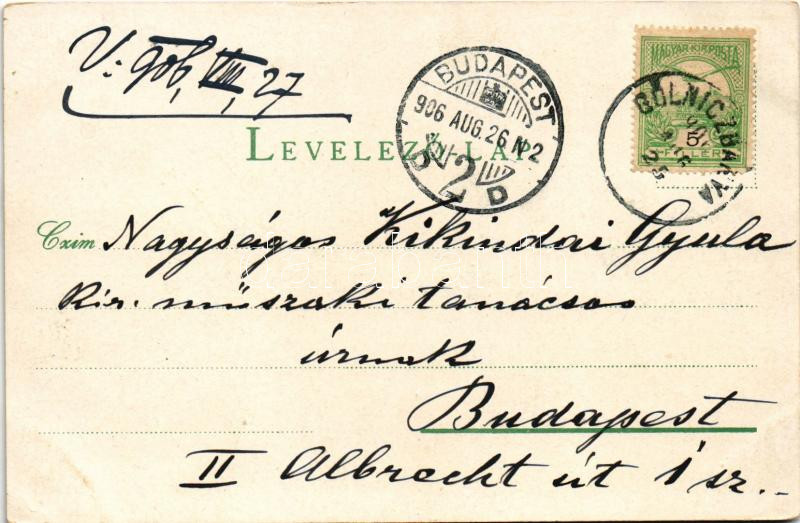 V: 906, VIII, 27
MAGYAR KIR. POSTA
5
FILLÉR
BUDAPEST
906 AUG. 26 N 2
D 2 D
GÖLNICZBÁNYA
LEVELEZŐ-LAP.
Czim Nagyságos Kikindai Gyula
kir. műszaki tanácsos
úrnak
Budapest
II Albrecht út 1 sz..